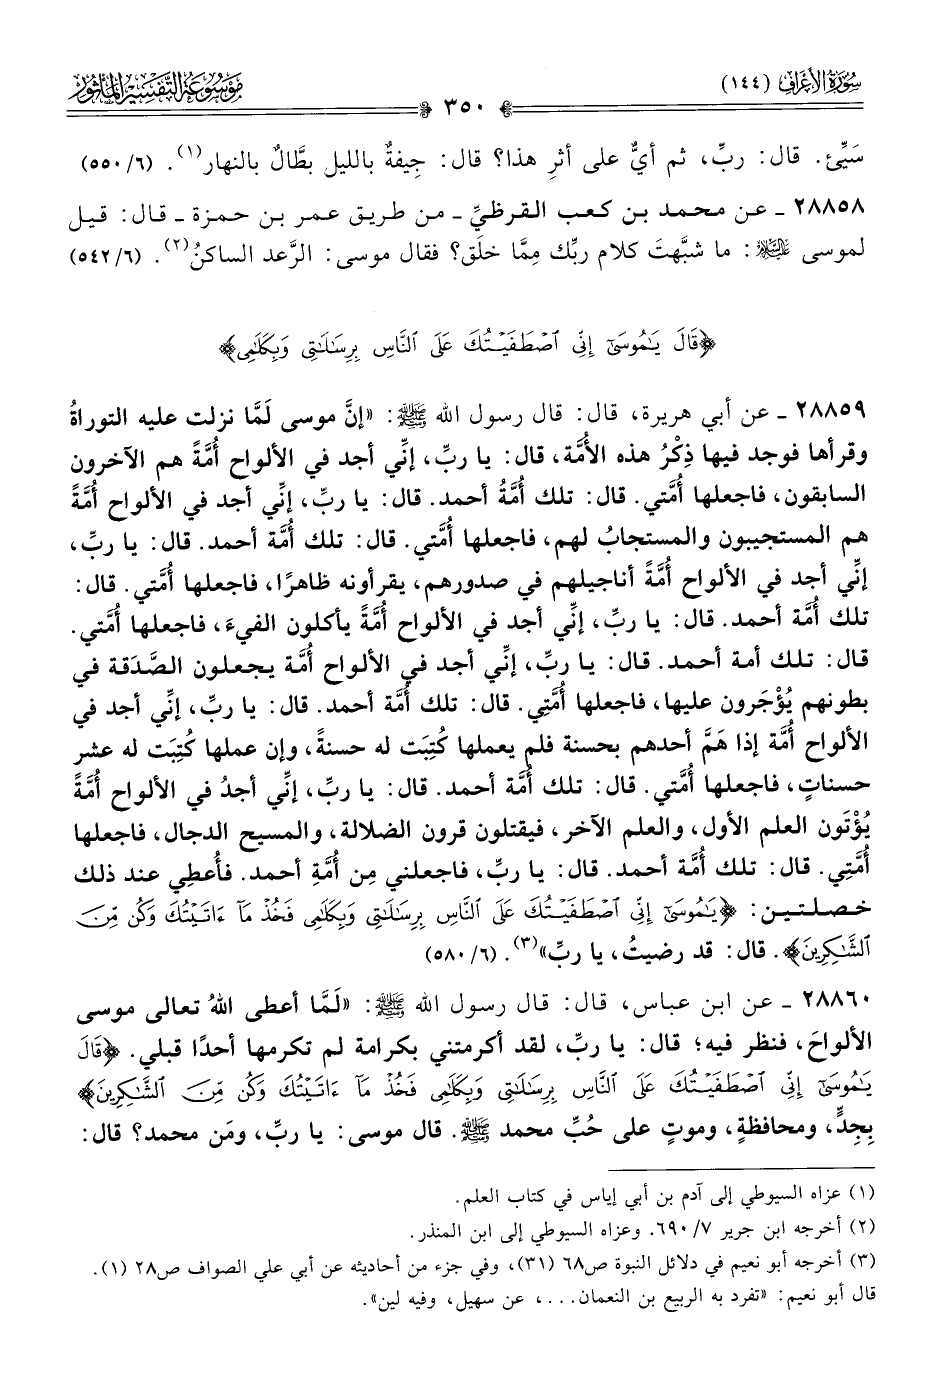 سُورَةُ الأَعْرَافِ (١٤٤)
٣٥٠
مَوْسُوعَةُ التَّفْسِيرِ المَأْثُورِ
سَيِّئ. قال: ربِّ، ثم أيٌّ على أثرِ هذا؟ قال: جِيفةٌ بالليل بطَّالٌ بالنهار(١). (٦/ ٥٥٠)
٢٨٨٥٨ ـ عن محمد بن كعب القرظيِّ ـ من طريق عمر بن حمزة ـ قال: قيل
لموسى عليه السلام: ما شبَّهتَ كلام ربِّك مِمَّا خلَق؟ فقال موسى: الرَّعد الساكنُ(٢). (٦/ ٥٤٢)
﴿قَالَ يَـٰمُوسَىٰٓ إِنِّي ٱصۡطَفَيۡتُكَ عَلَى ٱلنَّاسِ بِرِسَـٰلَـٰتِي وَبِكَلَـٰمِي﴾
٢٨٨٥٩ ـ عن أبي هريرة، قال: قال رسول الله ﷺ: «إنَّ موسى لَمَّا نزلت عليه التوراةُ
وقرأها فوجد فيها ذِكْرُ هذه الأمَّة، قال: يا ربِّ، إنِّي أجد في الألواح أُمَّةً هم الآخرون
السابقون، فاجعلها أُمَّتي. قال: تلك أُمَّةُ أحمد. قال: يا ربِّ، إنِّي أجد في الألواح أُمَّةً
هم المستجيبون والمستجابُ لهم، فاجعلها أُمَّتي. قال: تلك أُمَّة أحمد. قال: يا ربِّ،
إنِّي أجد في الألواح أُمَّةً أناجيلهم في صدورهم، يقرأونه ظاهرًا، فاجعلها أُمَّتي. قال:
تلك أُمَّة أحمد. قال: يا ربِّ، إنِّي أجد في الألواح أُمَّةً يأكلون الفيءَ، فاجعلها أُمَّتي.
قال: تلك أمة أحمد. قال: يا ربِّ، إنِّي أجد في الألواح أُمَّة يجعلون الصَّدَقة في
بطونهم يُؤْجَرون عليها، فاجعلها أُمَّتِي. قال: تلك أُمَّة أحمد. قال: يا ربِّ، إنِّي أجد في
الألواح أُمَّة إذا هَمَّ أحدهم بحسنة فلم يعملها كُتِبَت له حسنةً، وإن عملها كُتِبَت له عشر
حسناتٍ، فاجعلها أُمَّتي. قال: تلك أُمَّة أحمد. قال: يا ربِّ، إنِّي أجدُ في الألواح أُمَّةً
يُؤْتَون العلم الأول، والعلم الآخر، فيقتلون قرون الضلالة، والمسيح الدجال، فاجعلها
أُمَّتِي. قال: تلك أُمَّة أحمد. قال: يا ربِّ، فاجعلني مِن أُمَّةِ أحمد. فأُعطِي عند ذلك
خصلتين: ﴿يَـٰمُوسَىٰٓ إِنِّي ٱصۡطَفَيۡتُكَ عَلَى ٱلنَّاسِ بِرِسَـٰلَـٰتِي وَبِكَلَـٰمِي فَخُذۡ مَآ ءَاتَيۡتُكَ وَكُن مِّنَ
ٱلشَّـٰكِرِينَ﴾. قال: قد رضيتُ، يا ربِّ»(٣). (٦/ ٥٨٠)
٢٨٨٦٠ ـ عن ابن عباس، قال: قال رسول الله ﷺ: «لَمَّا أعطى اللهُ تعالى موسى
الألواحَ، فنظر فيه؛ قال: يا ربِّ، لقد أكرمتني بكرامة لم تكرمها أحدًا قبلي. ﴿قَالَ
يَـٰمُوسَىٰٓ إِنِّي ٱصۡطَفَيۡتُكَ عَلَى ٱلنَّاسِ بِرِسَـٰلَـٰتِي وَبِكَلَـٰمِي فَخُذۡ مَآ ءَاتَيۡتُكَ وَكُن مِّنَ ٱلشَّـٰكِرِينَ﴾
بِجِدٍّ، ومحافظةٍ، وموتٍ على حُبِّ محمد ﷺ. قال موسى: يا ربِّ، ومَن محمد؟ قال:
(١) عزاه السيوطي إلى آدم بن أبي إياس في كتاب العلم.
(٢) أخرجه ابن جرير ٧/ ٦٩٠. وعزاه السيوطي إلى ابن المنذر.
(٣) أخرجه أبو نعيم في دلائل النبوة ص٦٨ (٣١)، وفي جزء من أحاديثه عن أبي علي الصواف ص٢٨ (١).
قال أبو نعيم: «تفرد به الربيع بن النعمان...، عن سهيل، وفيه لين».